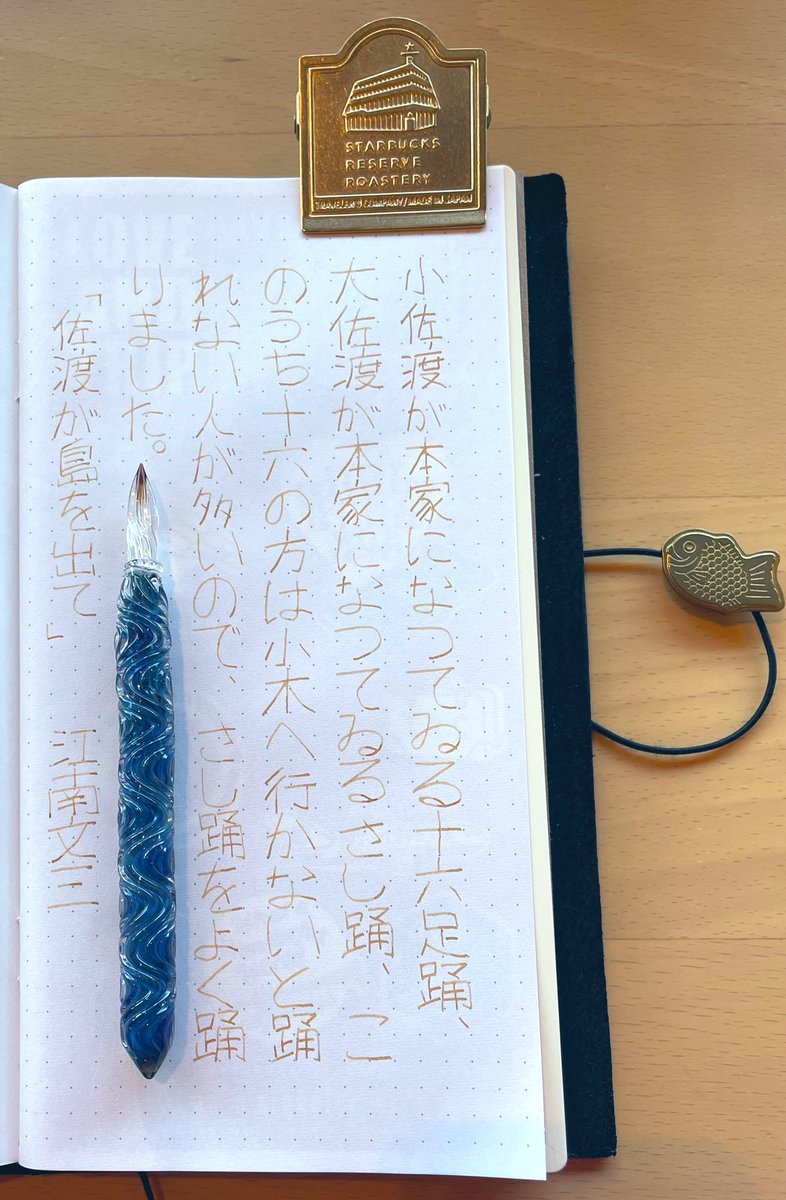 STARBUCKS
RESERVE
ROASTERY
TRAVELER'S COMPANY / MADE IN JAPAN
小佐渡が本家になつてゐる十六足踊、
大佐渡が本家になつてゐるさし踊、こ
のうち十六の方は小木へ行かないと踊
れない人が多いので、さし踊をよく踊
りました。
「佐渡が島を出て」 江南文三